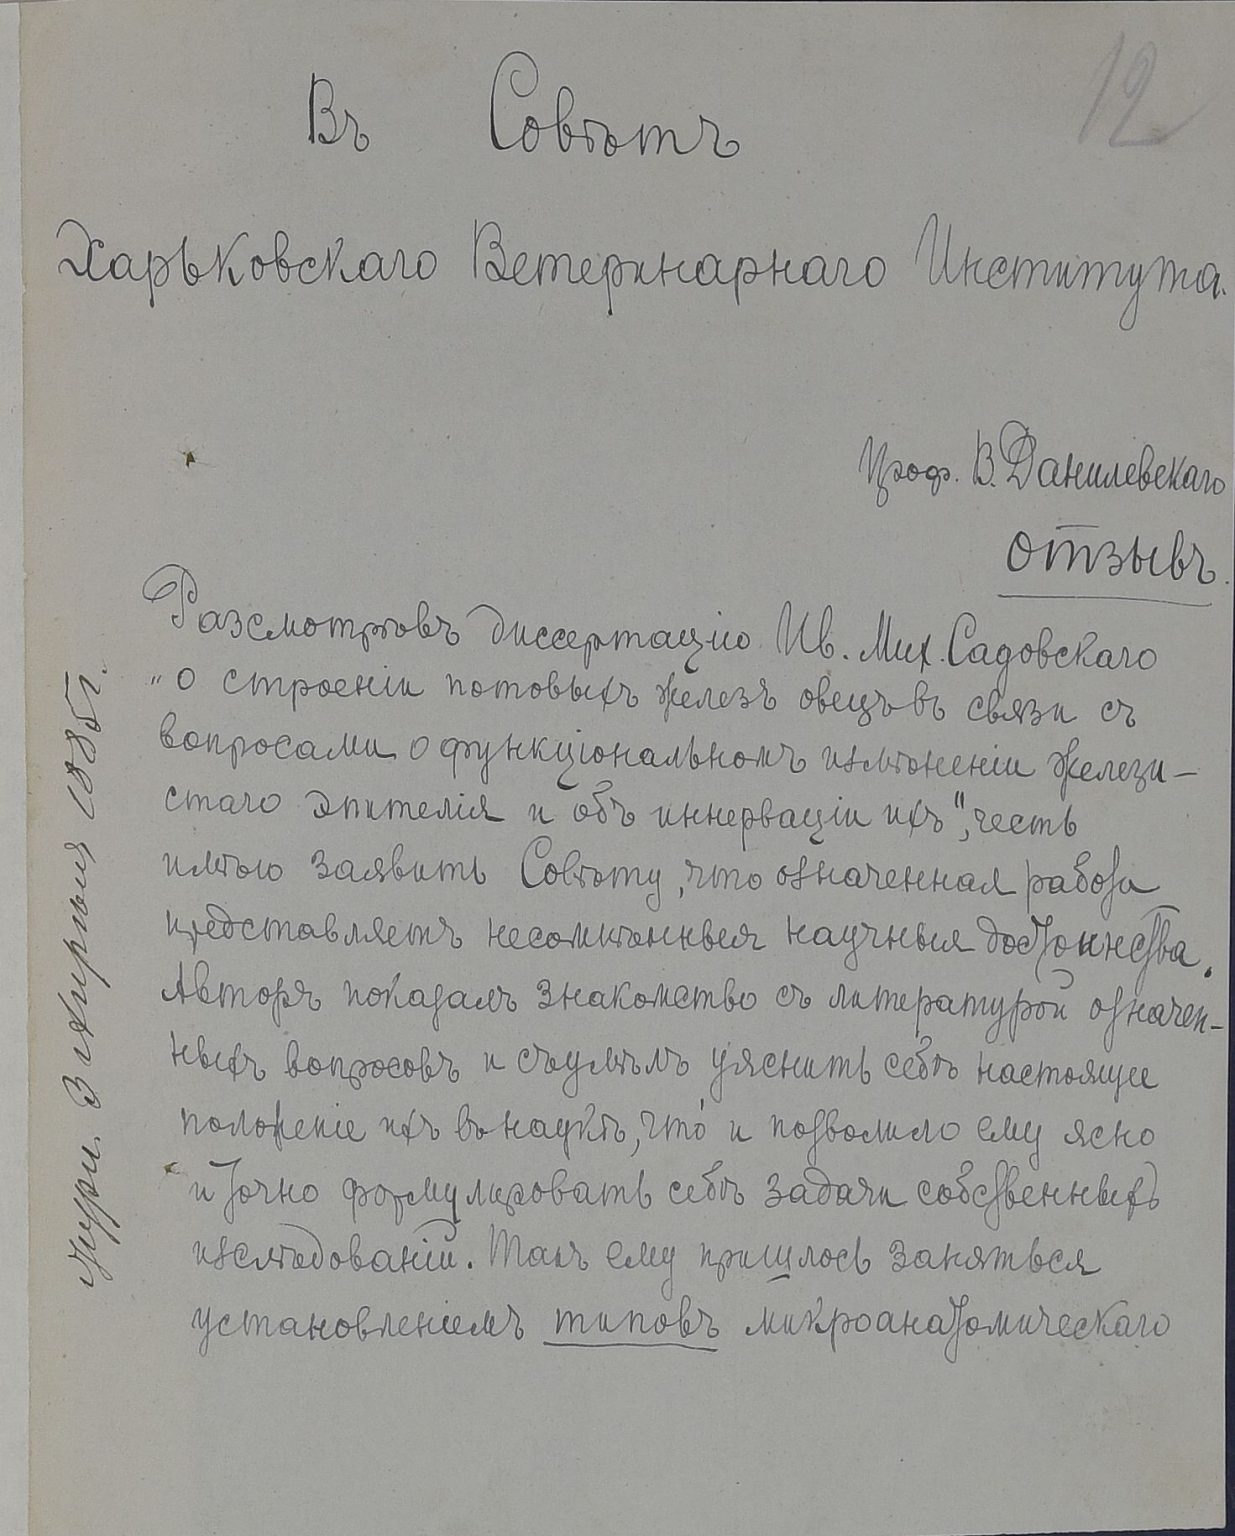 12
Въ Совѣтъ
Харьковскаго Ветеринарнаго Института.
Проф. В. Данилевскаго
отзывъ.
Разсмотрѣвъ диссертацію Ив. Мих. Садовскаго
"О строеніи потовыхъ железъ овецъ въ связи съ
вопросами о функціональномъ измѣненіи желези-
стаго эпителія и объ иннерваціи ихъ", честь
имѣю заявить Совѣту, что означенная работа
представляетъ несомнѣнныя научныя достоинства.
Авторъ показалъ знакомство съ литературой означен-
ныхъ вопросовъ и съумѣлъ уяснить себѣ настоящее
положеніе ихъ въ наукѣ, что и позволило ему ясно
и точно формулировать себѣ задачи собственныхъ
изслѣдованій. Такъ ему пришлось заняться
установленіемъ типовъ микроанатомическаго
3 Апрѣля 1885 г.